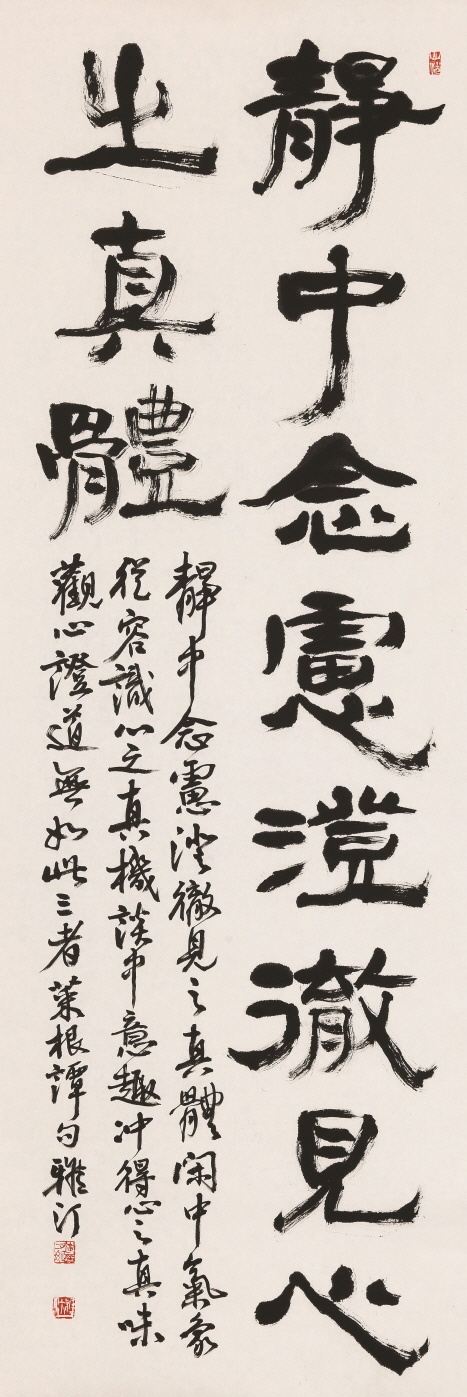 靜中念慮澄徹見心
之真體
靜中念慮澄徹見之真體閑中氣象
從容識心之真機談中意趣冲得心之真味
觀心證道無如此三者菜根譚句雅汀